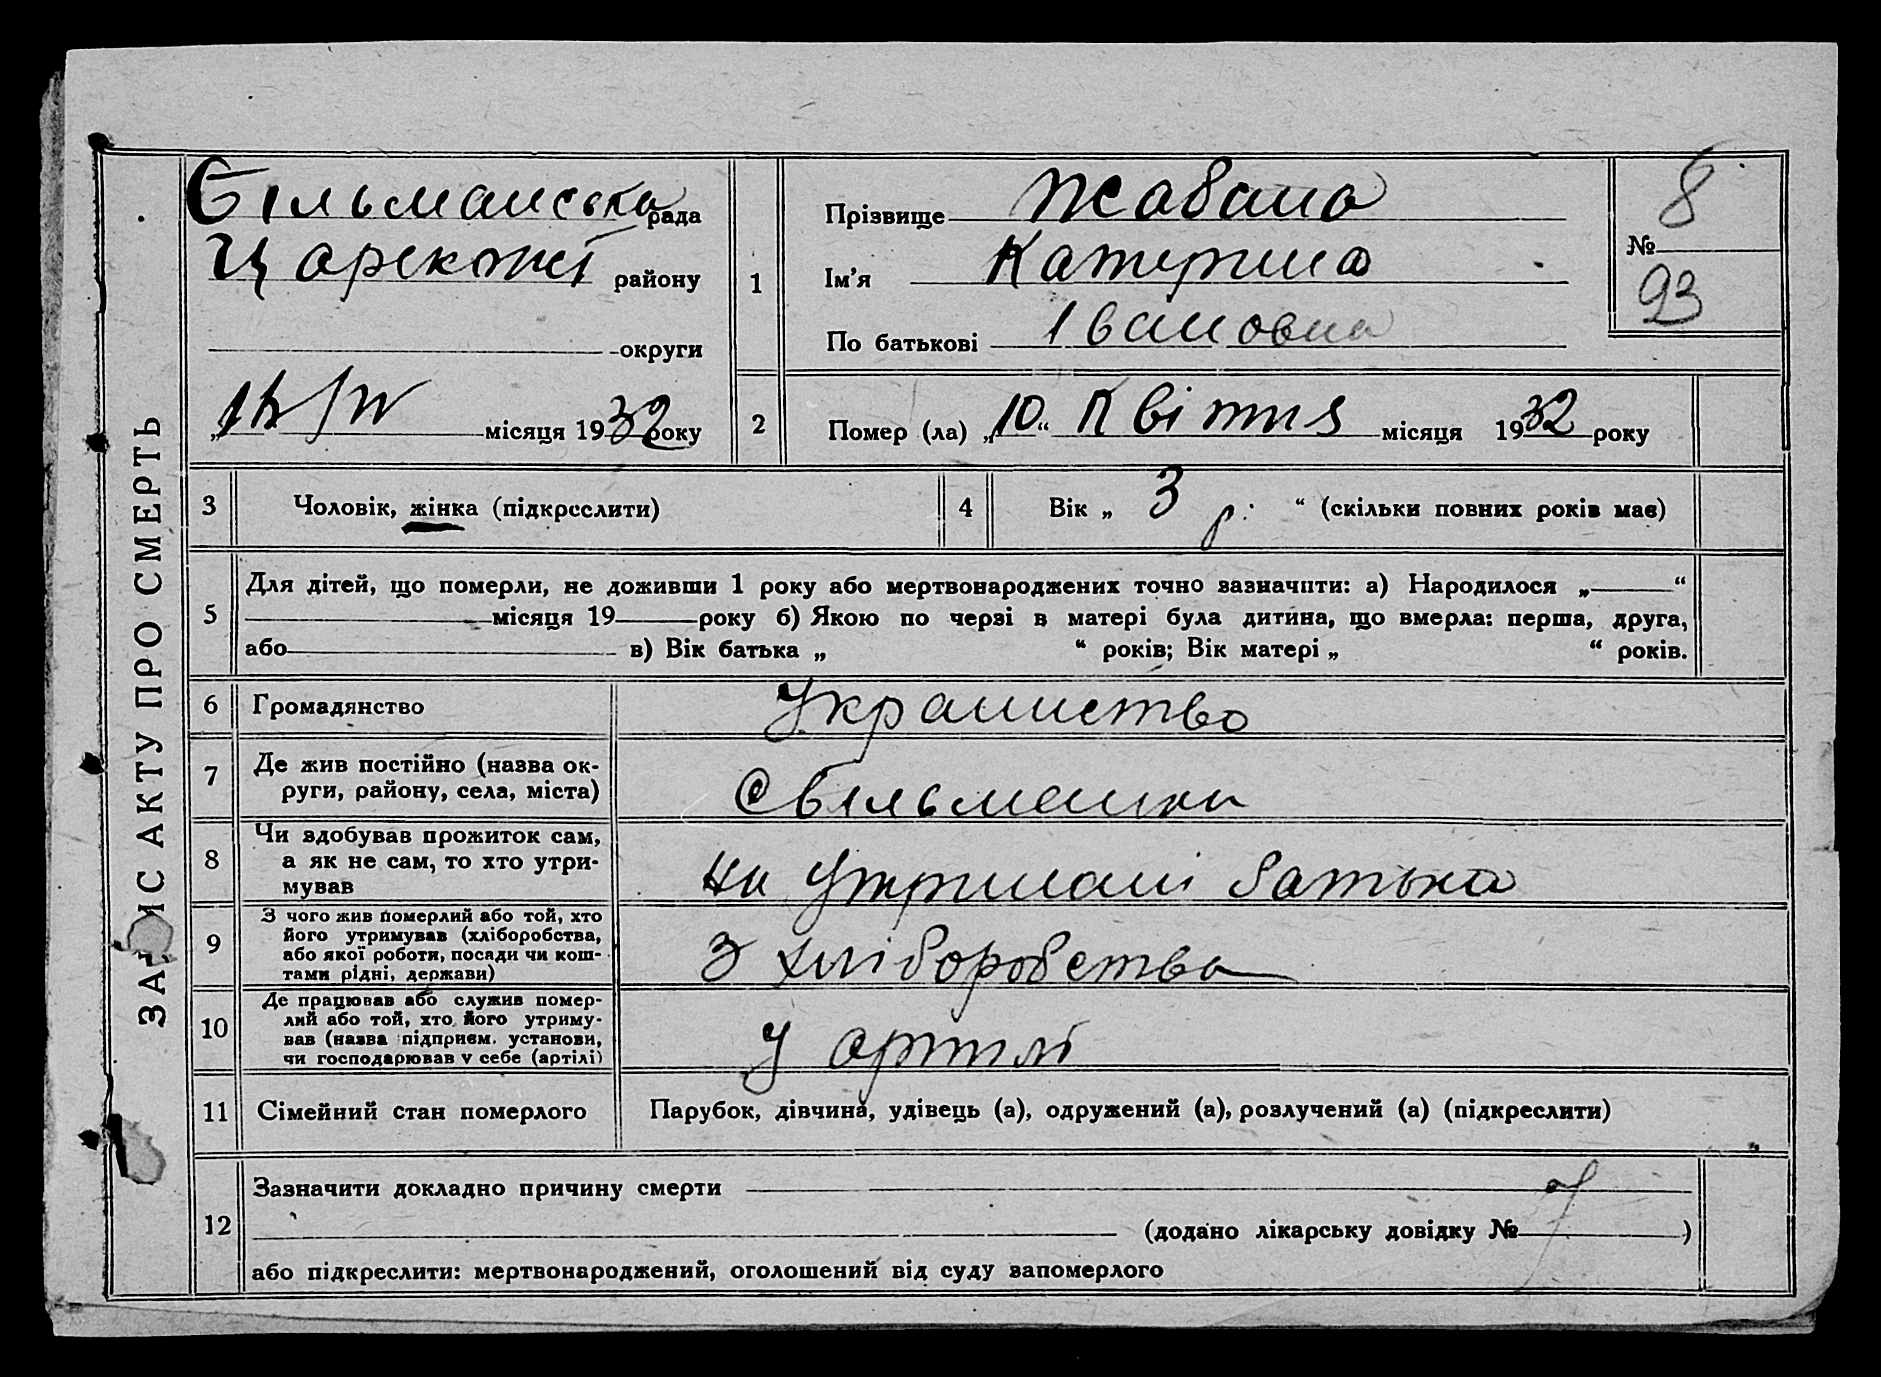 ЗАПИС АКТУ ПРО СМЕРТЬ
Більманська рада
Царекон району
округи
місяця 1932 року
1
Прізвище Жабана
Ім'я Катерина
По батькові Івановна
8
№
93
2
Помер (ла) „10“ Квітня місяця 1932 року
3
Чоловік, жінка (підкреслити)
4
Вік „ 3 р. “ (скільки повних років має)
5
Для дітей, що померли, не доживши 1 року або мертвонароджених точно зазначити: а) Народилося „ “
місяця 19 року б) Якою по черзі в матері була дитина, що вмерла: перша, друга,
або в) Вік батька „ “ років; Вік матері „ “ років.
6
Громадянство
Украинство
7
Де жив постійно (назва ок-
руги, району, села, міста)
С Більманка
8
Чи здобував прожиток сам,
а як не сам, то хто утри-
мував
на Утримані батька
9
З чого жив померлий або той, хто
його утримував (хліборобства,
або якої роботи, посади чи кош-
тами рідні, держави)
З хліборобства
10
Де працював або служив помер-
лий або той, хто його утриму-
вав (назва підприєм. установи,
чи господарював у себе (артілі)
У артілі
11
Сімейний стан померлого
Парубок, дівчина, удівець (а), одружений (а), розлучений (а) (підкреслити)
12
Зазначити докладно причину смерти
(додано лікарську довідку № )
або підкреслити: мертвонароджений, оголошений від суду запомерлого